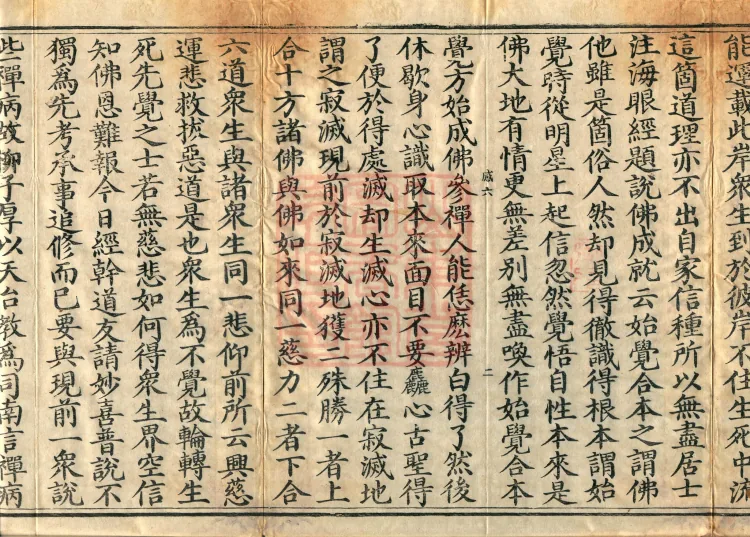 能運載此岸衆生到於彼岸不住生死中流
這箇道理亦不出自家信種所以無盡居士
注海眼經題說佛成就云始覺合本之謂佛
他雖是箇俗人然却見得徹識得根本謂始
覺時從明星上起信忽然覺悟自性本來是
佛大地有情更無差別無盡喚作始覺合本
覺方始成佛參禪人能恁麽辨白得了然後
休歇身心識取本來面目不要麤心古聖得
了便於得處滅却生滅心亦不住在寂滅地
謂之寂滅現前於寂滅地獲二殊勝一者上
合十方諸佛與佛如來同一慈力二者下合
六道衆生與諸衆生同一悲仰前所云興慈
運悲救拔惡道是也衆生爲不覺故輪轉生
死先覺之士若無慈悲如何得衆生界空信
知佛恩難報今日經幹道友請妙喜普說不
獨爲先考承事追修而已要與現前一衆說
些禪病故柳子厚以天台教爲司南言禪病
二